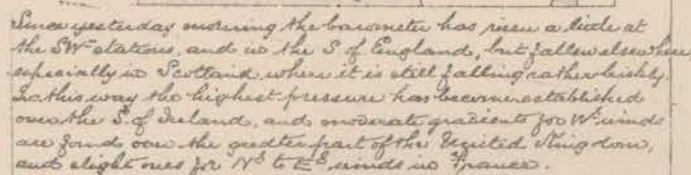 Since yesterday morning the barometer has risen a little at
the SWn stations, and in the S of England, but fallen elsewhere,
especially in Scotland, where it is still falling rather briskly.
In this way the highest pressure has become established
over the S. of Ireland, and moderate gradients for Wly winds
are found over the greater part of the United Kingdom,
and slight ones for Nly to Ely winds in France.